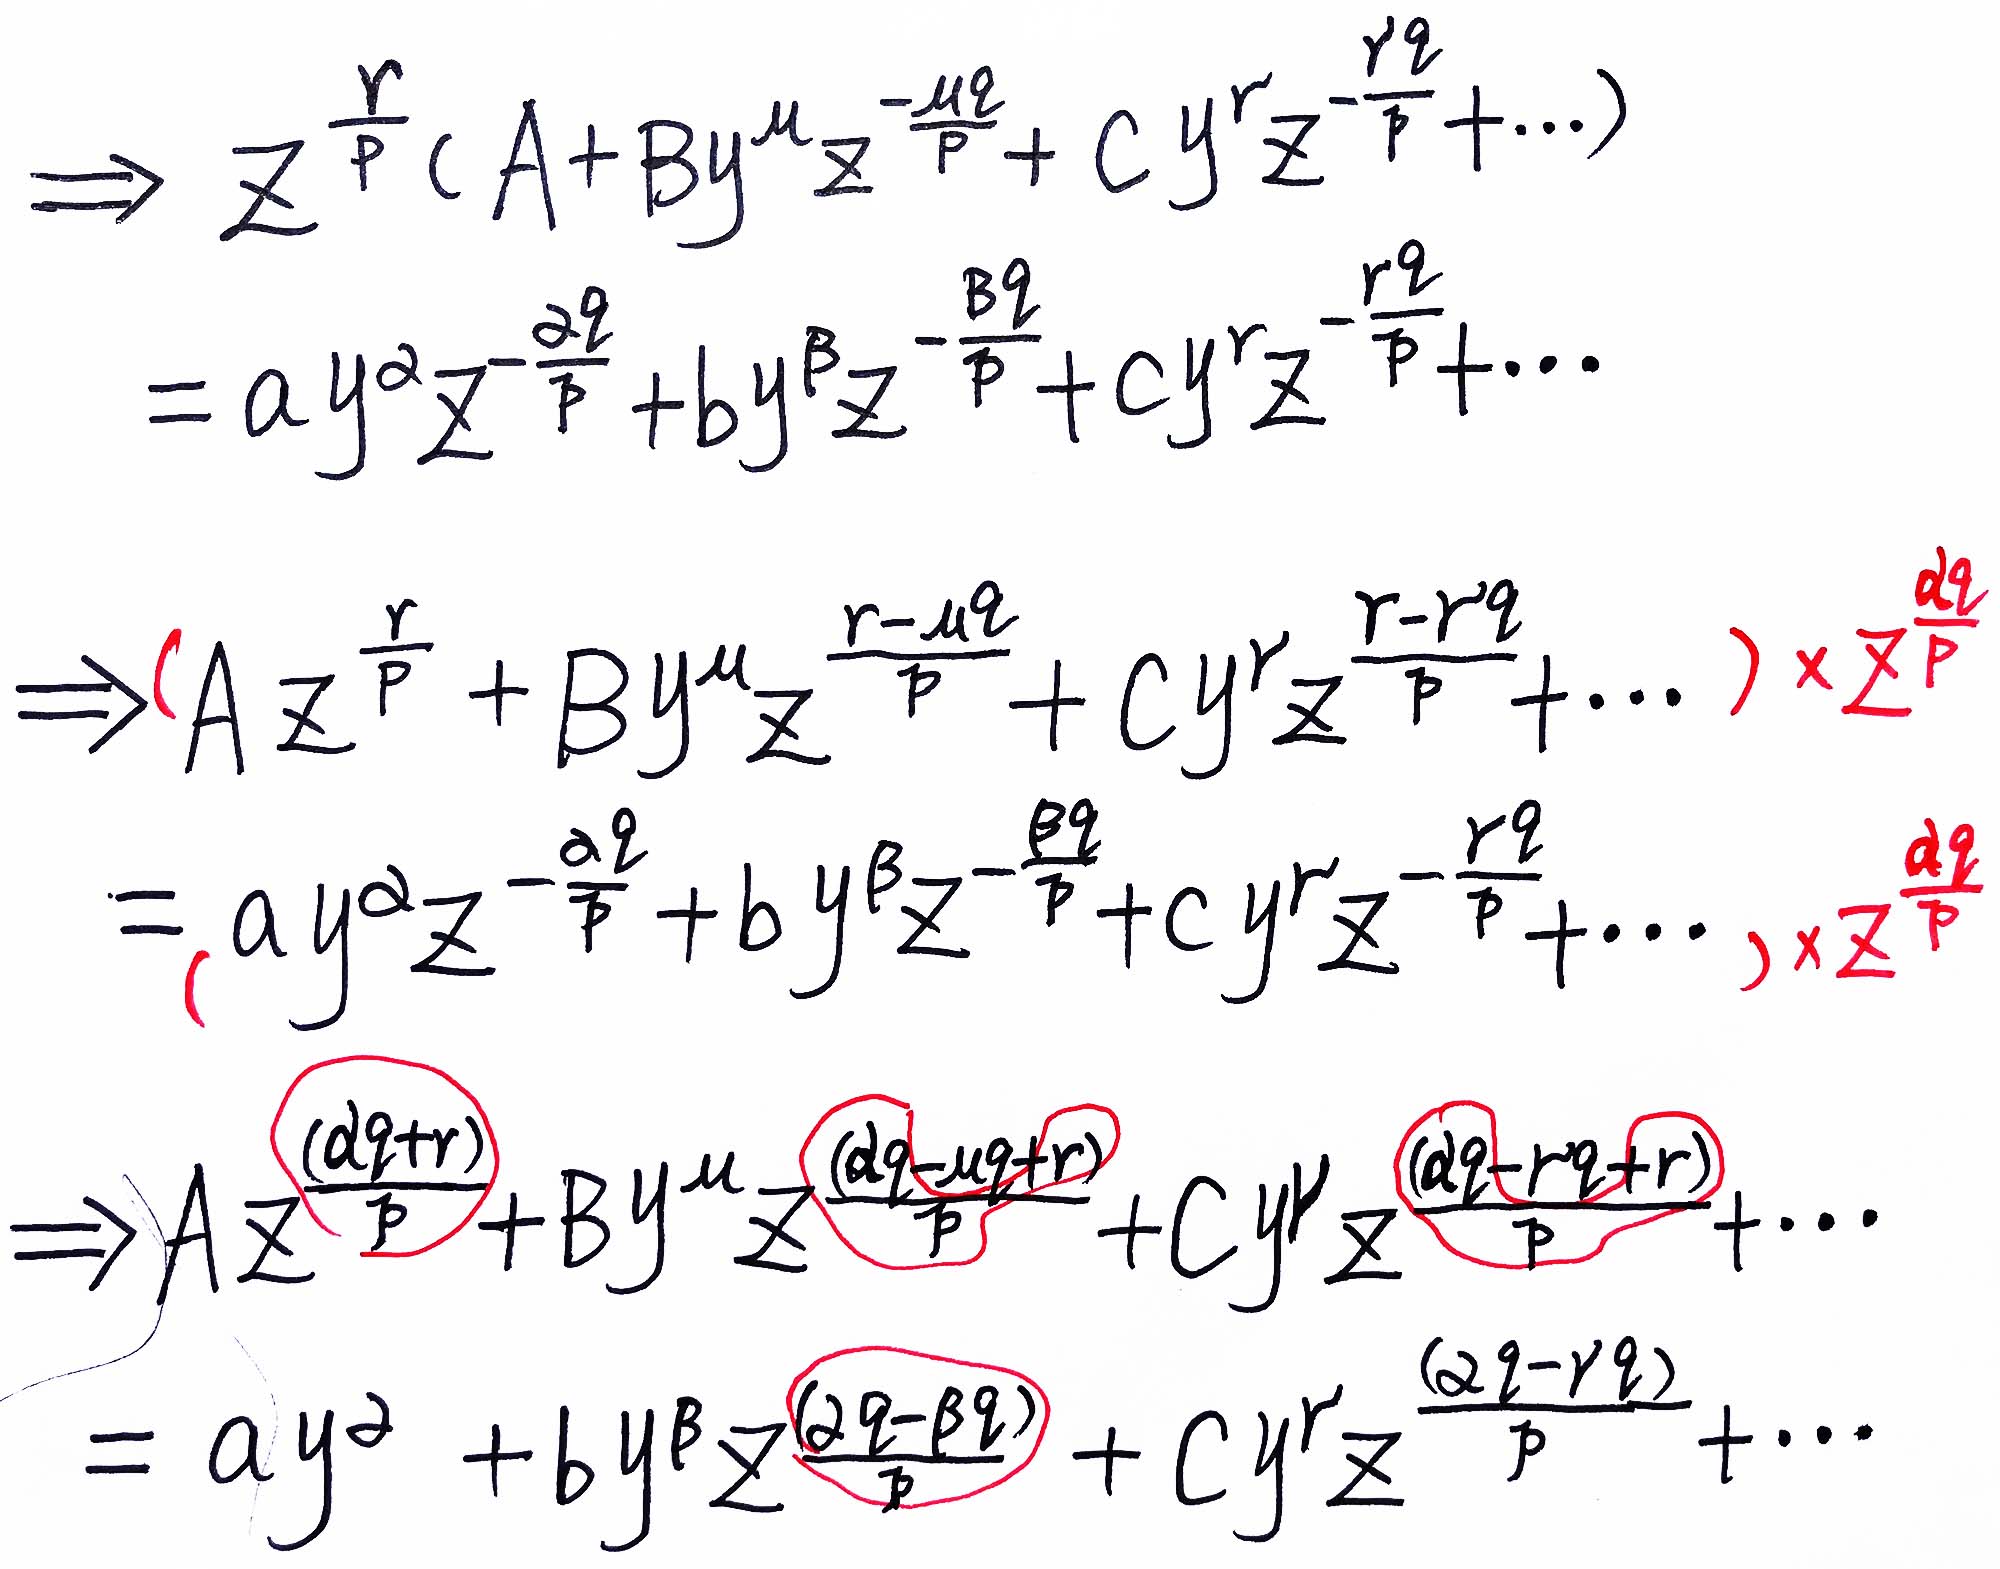 ⇒ z^{\frac{r}{p}} ( A + By^μ z^{-\frac{μq}{p}} + Cy^γ z^{-\frac{γq}{p}} + ⋯ )
= ay^α z^{-\frac{αq}{p}} + by^β z^{-\frac{βq}{p}} + cy^γ z^{-\frac{γq}{p}} + ⋯
⇒ ( Az^{\frac{r}{p}} + By^μ z^{\frac{r-μq}{p}} + Cy^γ z^{\frac{r-γq}{p}} + ⋯ ) × z^{\frac{αq}{p}}
= ( ay^α z^{-\frac{αq}{p}} + by^β z^{-\frac{βq}{p}} + cy^γ z^{-\frac{γq}{p}} + ⋯ ) × z^{\frac{αq}{p}}
⇒ Az^{\frac{(αq+r)}{p}} + By^μ z^{\frac{(αq-μq+r)}{p}} + Cy^γ z^{\frac{(αq-γq+r)}{p}} + ⋯
= ay^α + by^β z^{\frac{(αq-βq)}{p}} + cy^γ z^{\frac{(αq-γq)}{p}} + ⋯